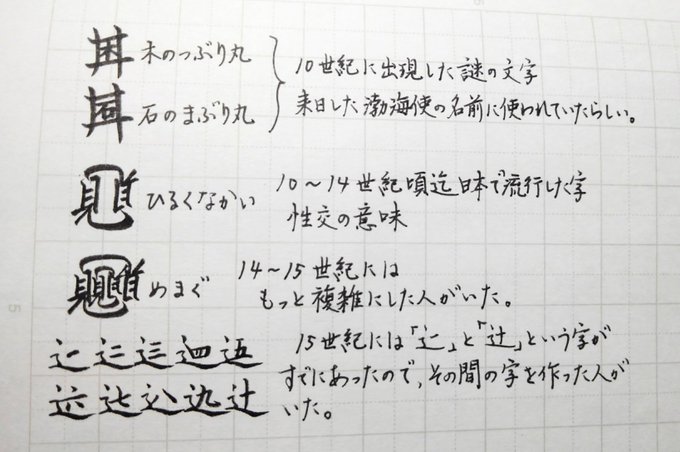 木のつぶり丸
石のまぶり丸
10世紀に出現した謎の文字
来日した渤海使の名前に使われていたらしい。
ひるくなかい
10～14世紀頃迄日本で流行した字
性交の意味
めまぐ
14～15世紀には
もっと複雑にした人がいた。
15世紀には「辷」と「辻」という字が
すでにあったので，その間の字を作った人が
いた。